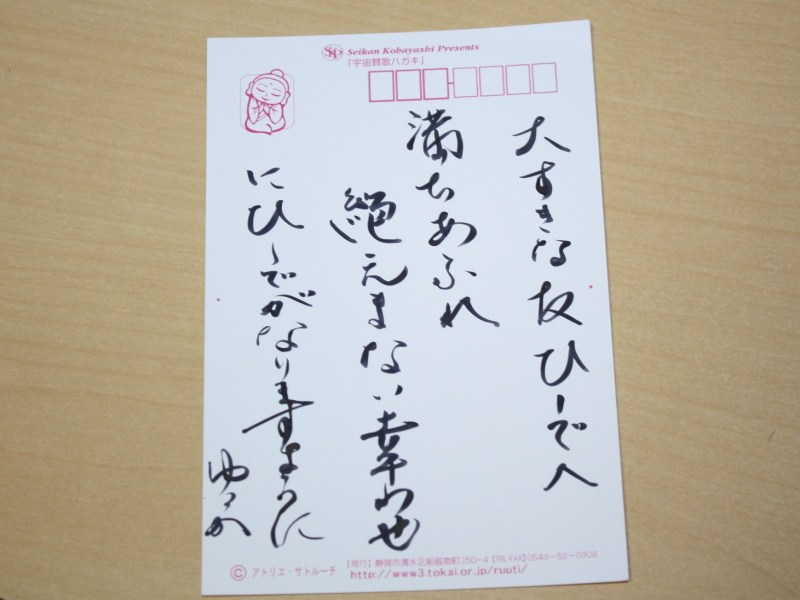 SKP Seikan Kobayashi Presents
「宇宙賛歌ハガキ」
大すきな友ひーでへ
満ちあふれ
絶えまない幸わせ
にひーでがなりますように
ゆうか
© アトリエ・サトルーチ
【発行】静岡市清水区船越南町250-4【TEL・FAX】0543-52-0308
http://www3.tokai.or.jp/ruuti/